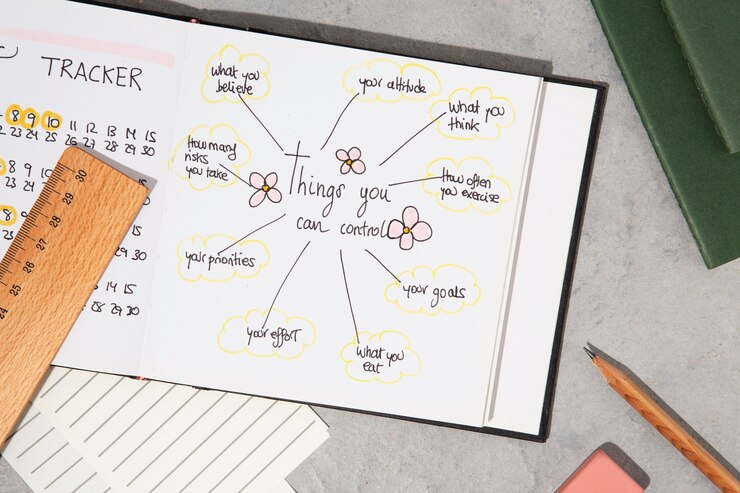 TRACKER
8 9 10 11 12 13 14 15
23 24 25 26 27 28 29 30
8 9 10
23 24
8 9
14 15
28 29 30
30
29
28
27
26
25
24
what you
believe
your attitude
what you
think
How many
risks
you take
How often
you exercise
Things you
can control
your priorities
your goals
your effort
what you
eat